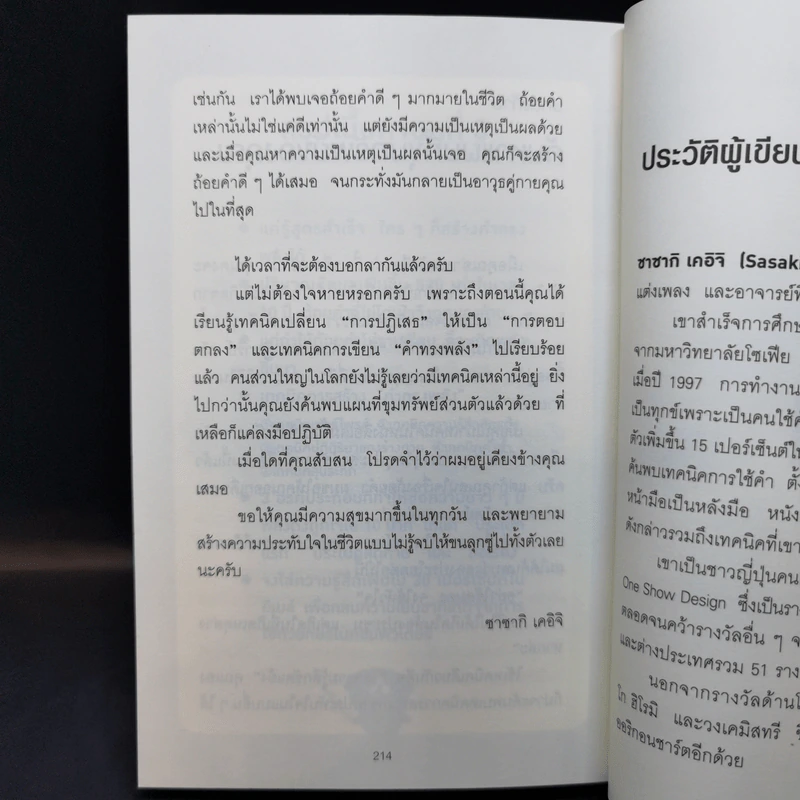 เช่นกัน เราได้พบเจอถ้อยคำดี ๆ มากมายในชีวิต ถ้อยคำ
เหล่านั้นไม่ใช่แค่ดีเท่านั้น แต่ยังมีความเป็นเหตุเป็นผลด้วย
และเมื่อคุณหาความเป็นเหตุเป็นผลนั้นเจอ คุณก็จะสร้าง
ถ้อยคำดี ๆ ได้เสมอ จนกระทั่งมันกลายเป็นอาวุธคู่กายคุณ
ไปในที่สุด
ได้เวลาที่จะต้องบอกลากันแล้วครับ
แต่ไม่ต้องใจหายหรอกครับ เพราะถึงตอนนี้คุณได้
เรียนรู้เทคนิคเปลี่ยน “การปฏิเสธ” ให้เป็น “การตอบ
ตกลง” และเทคนิคการเขียน “คำทรงพลัง” ไปเรียบร้อย
แล้ว คนส่วนใหญ่ในโลกยังไม่รู้เลยว่ามีเทคนิคเหล่านี้อยู่ ยิ่ง
ไปกว่านั้นคุณยังค้นพบแผนที่ขุมทรัพย์ส่วนตัวแล้วด้วย ที่
เหลือก็แค่ลงมือปฏิบัติ
เมื่อใดที่คุณสับสน โปรดจำไว้ว่าผมอยู่เคียงข้างคุณ
เสมอ
ขอให้คุณมีความสุขมากขึ้นในทุกวัน และพยายาม
สร้างความประทับใจในชีวิตแบบไม่รู้จบให้ขนลุกซู่ไปทั้งตัวเลย
นะครับ
ซาซากิ เคอิจิ
214
ประวัติผู้เขียน
ซาซากิ เคอิจิ (Sasaki
แต่งเพลง และอาจารย์
เขาสำเร็จการศึกษ
จากมหาวิทยาลัยโซเฟีย
เมื่อปี 1997 การทำงาน
เป็นทุกข์เพราะเป็นคนใช้
ตัวเพิ่มขึ้น 15 เปอร์เซ็นต์ใน
ค้นพบเทคนิคการใช้คำ ตั้ง
หน้ามือเป็นหลังมือ หนัง
ดังกล่าวรวมถึงเทคนิคที่เขา
เขาเป็นชาวญี่ปุ่นคน
One Show Design ซึ่งเป็นรา
ตลอดจนคว้ารางวัลอื่น ๆ จ
และต่างประเทศรวม 51 ราง
นอกจากรางวัลด้านโ
โก ฮิโรมิ และวงเคมิสทรี
ออริกอนชาร์ตอีกด้วย